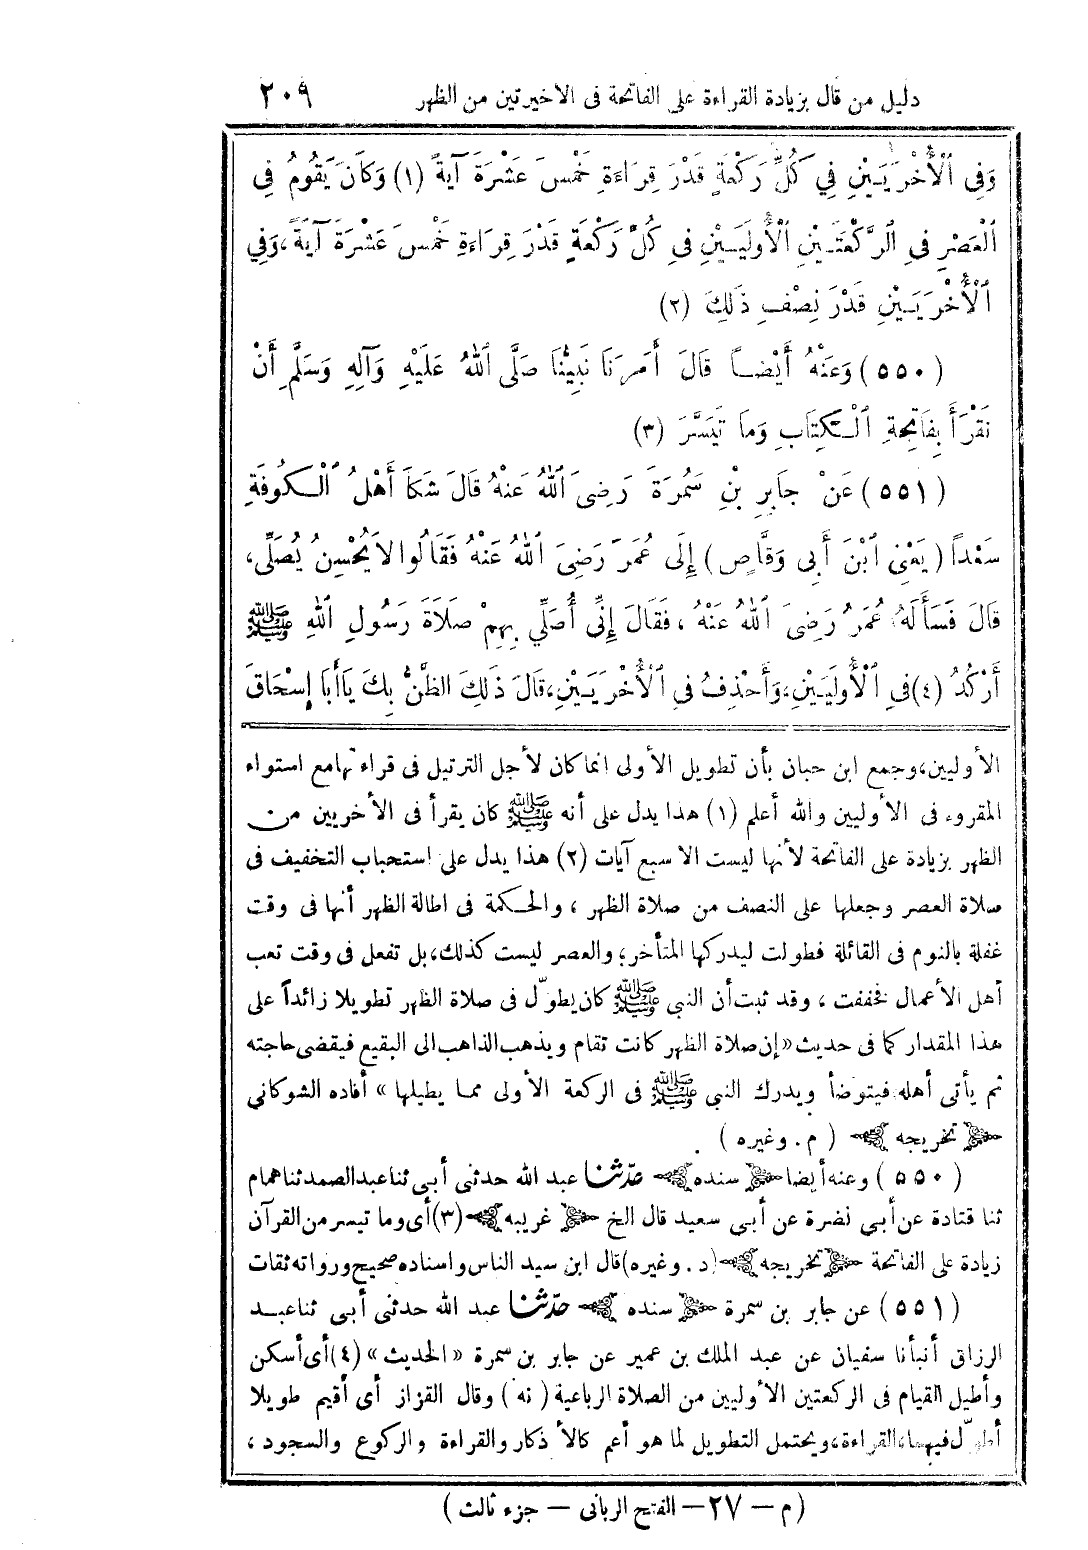 دليل من قال بزيادة القراءة على الفاتحة فى الأخيرتين من الظهر ٢٠٩
وَفِى ٱلْأُخْرَيَيْنِ فِي كُلِّ رَكْعَةٍ قَدْرَ قِرَاءَةِ خَمْسَ عَشْرَةَ آيَةً (١) وَكَانَ يَقُومُ فِى
ٱلْعَصْرِ فِى ٱلرَّكْعَتَيْنِ ٱلْأُولَيَيْنِ فِى كُلِّ رَكْعَةٍ قَدْرَ قِرَاءَةِ خَمْسَ عَشْرَةَ آيَةً، وَفِي
ٱلْأُخْرَيَيْنِ قَدْرَ نِصْفِ ذَلِكَ (٢)
(٥٥٠) وَعَنْهُ أَيْضًا قَالَ أَمَرَنَا نَبِيُّنَا صَلَّى ٱللهُ عَلَيْهِ وَآلِهِ وَسَلَّمَ أَنْ
نَقْرَأَ بِفَاتِحَةِ ٱلْكِتَابِ وَمَا تَيَسَّرَ (٣)
(٥٥١) عَنْ جَابِرِ بْنِ سَمُرَةَ رَضِىَ ٱللهُ عَنْهُ قَالَ شَكَا أَهْلُ ٱلْكُوفَةِ
سَعْداً (يَعْنِى ٱبْنَ أَبِى وَقَّاصٍ) إِلَى عُمَرَ رَضِىَ ٱللهُ عَنْهُ فَقَالُوا لاَ يُحْسِنُ يُصَلِّى،
قَالَ فَسَأَلَهُ عُمَرُ رَضِىَ ٱللهُ عَنْهُ، فَقَالَ إِنِّى أُصَلِّي بِهِمْ صَلاَةَ رَسُولِ ٱللهِ ﷺ
أَرْكُدُ (٤) فِى ٱلْأُولَيَيْنِ، وَأَحْذِفُ فِى ٱلْأُخْرَيَيْنِ، قَالَ ذَلِكَ الظَّنُّ بِكَ يَا أَبَا إِسْحَاقَ
الأوليين، وجمع ابن حبان بأن تطويل الأولى انما كان لأجل الترتيل فى قراءتها مع استواء
المقروء فى الأوليين والله أعلم (١) هذا يدل على أنه ﷺ كان يقرأ فى الأخريين من
الظهر بزيادة على الفاتحة لأنها ليست الا سبع آيات (٢) هذا يدل على استحباب التخفيف فى
صلاة العصر وجعلها على النصف من صلاة الظهر، والحكمة فى اطالة الظهر أنها فى وقت
غفلة بالنوم فى القائلة فطولت ليدركها المتأخر؛ والعصر ليست كذلك، بل تفعل فى وقت تعب
أهل الأعمال فخففت، وقد ثبت أن النبي ﷺ كان يطوّل فى صلاة الظهر تطويلا زائداً على
هذا المقدار كما فى حديث «إن صلاة الظهر كانت تقام ويذهب الذاهب الى البقيع فيقضى حاجته
ثم يأتى أهله فيتوضأ ويدرك النبي ﷺ فى الركعة الأولى مما يطيلها» أفاده الشوكاني
تخريجه (م. وغيره)
(٥٥٠) وعنه أيضا سنده حدّثنا عبد الله حدثنى أبى ثنا عبد الصمد ثنا همام
ثنا قتادة عن أبي نضرة عن أبى سعيد قال الخ غريبه (٣) أى وما تيسر من القرآن
زيادة على الفاتحة تخريجه (د. وغيره) قال ابن سيد الناس واسناده صحيح ورواته ثقات
(٥٥١) عن جابر بن سمرة سنده حدّثنا عبد الله حدثنى أبى ثنا عبد
الرزاق أنبأنا سفيان عن عبد الملك بن عمير عن جابر بن سمرة «الحديث» (٤) أى أسكن
وأطيل القيام فى الركعتين الأوليين من الصلاة الرباعية (نه) وقال القزاز أى أقيم طويلا
أطوّل فيهما، القراءة، ويحتمل التطويل لما هو أعم كالأذكار والقراءة والركوع والسجود،
(م – ٢٧ – الفتح الربانى – جزء ثالث)